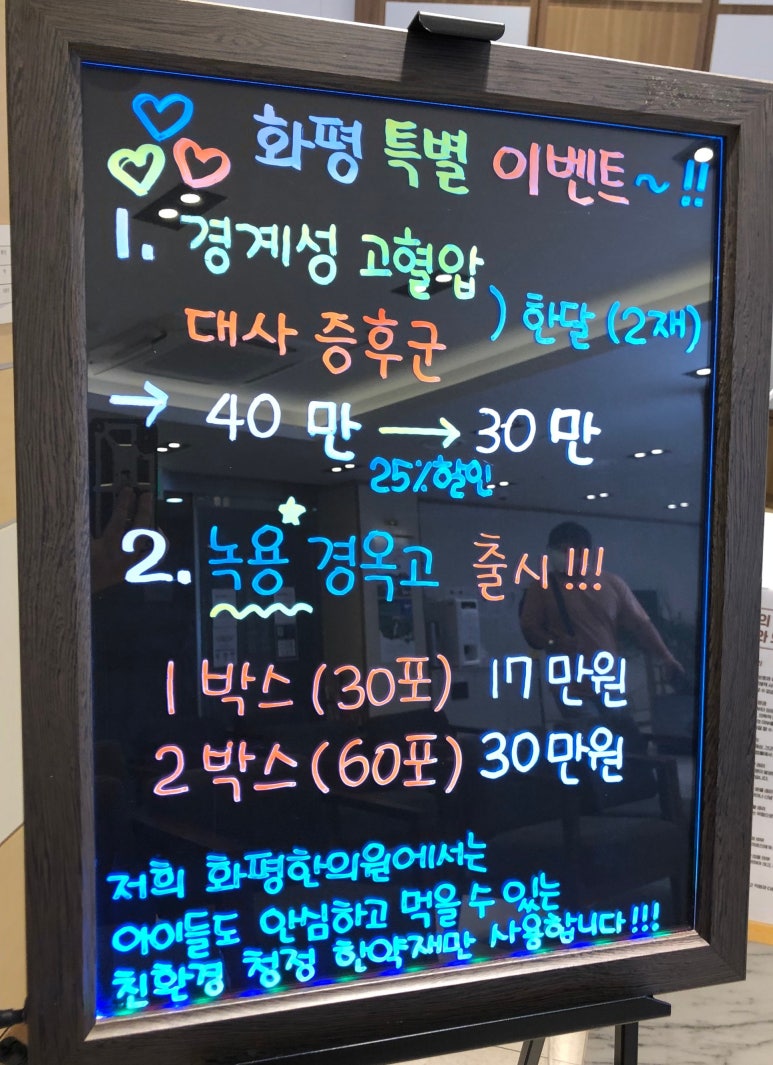 화평 특별 이벤트~!!
1. 경계성 고혈압
대사 증후군 ) 한달 (2재)
→ 40만 → 30만
25% 할인
2. 녹용 경옥고 출시!!!
1박스 (30포) 17만원
2박스 (60포) 30만원
저희 화평한의원에서는
아이들도 안심하고 먹을 수 있는
친환경 청정 한약재만 사용합니다!!!